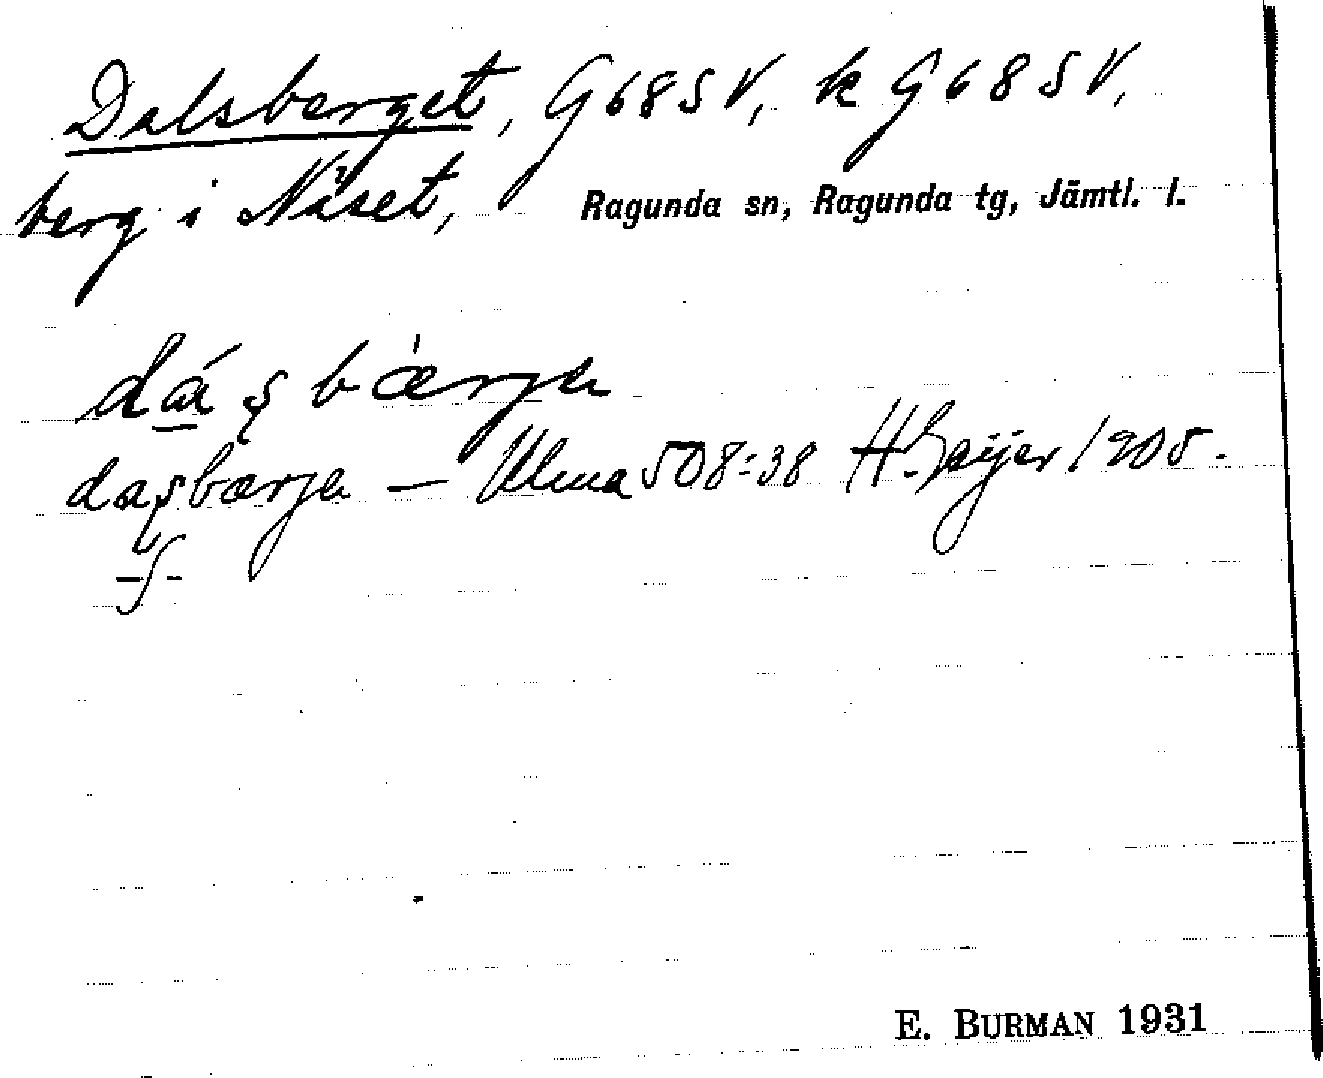 Dalsberget, G 68 S V, k G 68 S V,
berg i Näset, Ragunda sn, Ragunda tg, Jämtl. l.
dáʂbærja
daʂbærja — Ulma 508:38 H Geijer 1908.
-ʃ-
E. BURMAN 1931